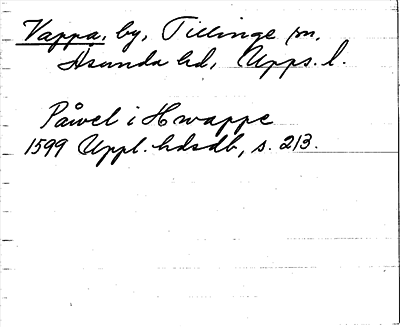 Vappa, by, Tillinge sn,
Åsunda hd, Upps. l.
Påwel i Hwappe
1599 Uppl. hdsdb, s. 213.